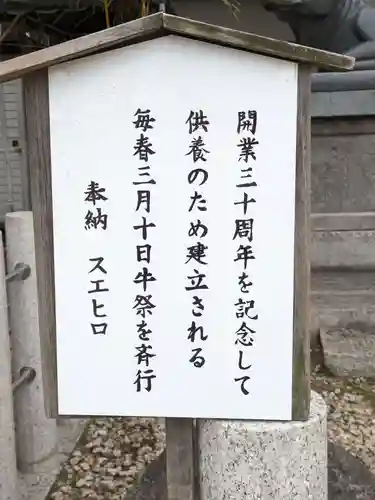 開業三十周年を記念して
供養のため建立される
毎春三月十日牛祭を斉行
奉納 スエヒロ